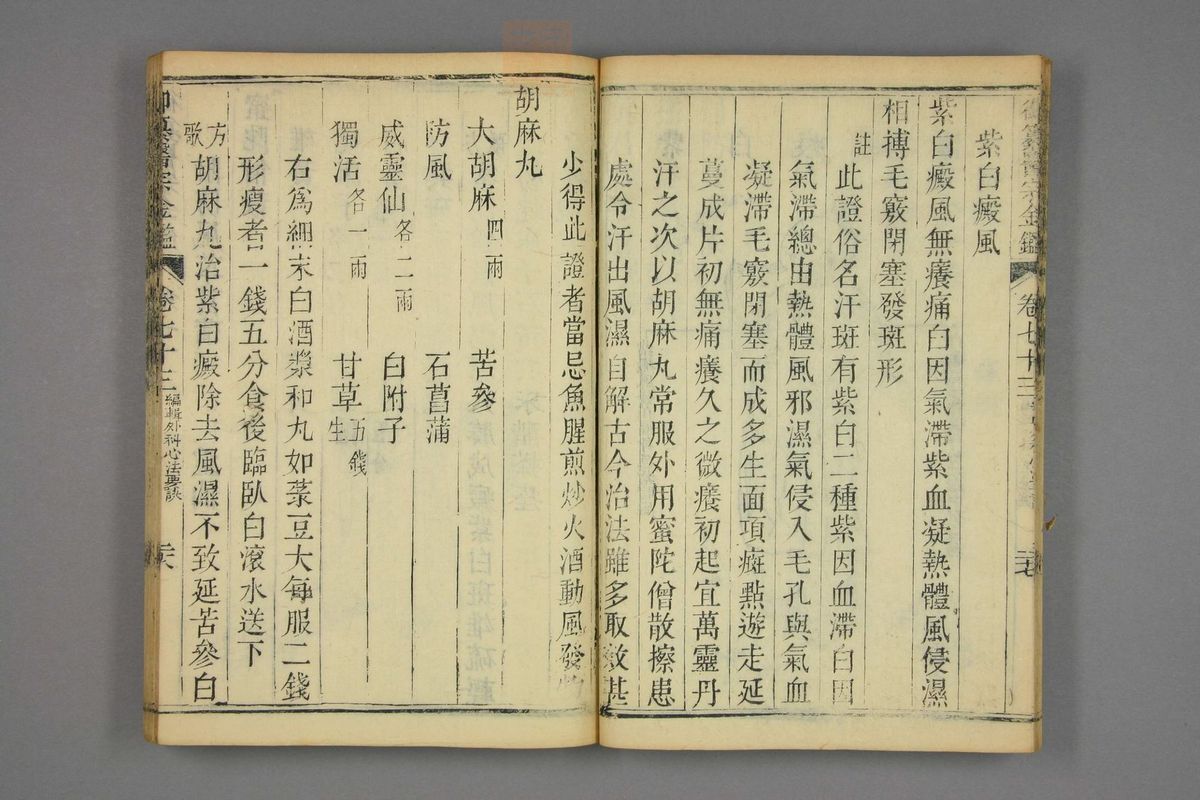 紫白癜風
紫白癜風無癢痛白因氣滯紫血凝熱體風侵濕
相搏毛竅閉塞發斑形
註此證俗名汗斑有紫白二種紫因血滯白因
氣滯總由熱體風邪濕氣侵入毛孔與氣血
凝滯毛竅閉塞而成多生面項斑點遊走延
蔓成片初無痛癢久之微癢初起宜萬靈丹
汗之次以胡麻丸常服外用蜜陀僧散擦患
處令汗出風濕自解古今治法雖多取效甚
少得此證者當忌魚腥煎炒火酒動風發物
胡麻丸
大胡麻四兩 苦參
防風 石菖蒲
威靈仙各二兩 白附子
獨活各一兩 甘草生五錢
右為細末白酒漿和丸如菉豆大每服二錢
形瘦者一錢五分食後臨臥白滾水送下
方歌胡麻丸治紫白癜除去風濕不致延苦參白
御纂醫宗金鑑 卷七十三 編輯外科心法要訣